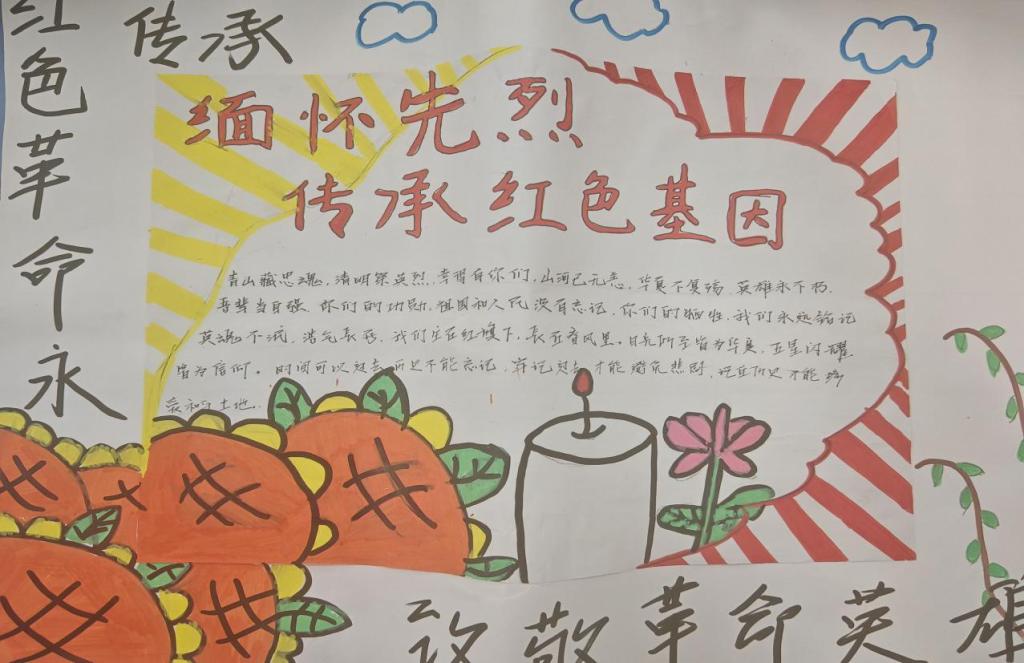 红色革命永
传承
缅怀先烈
传承红色基因
青山藏忠魂，清明祭英烈，幸得有你们，山河已无恙，华夏不复殇，英雄永不朽，
吾辈当自强．你们的功勋，祖国和人民没有忘记，你们的牺牲，我们永远铭记
英魂不泯，浩气长存，我们立在红旗下，长在春风里。目光所至皆为华夏，五星闪耀
皆为信仰。时间可以过去历史不能忘记，牢记过去才能避免悲剧，记住历史才能
土地．
致敬革命英雄